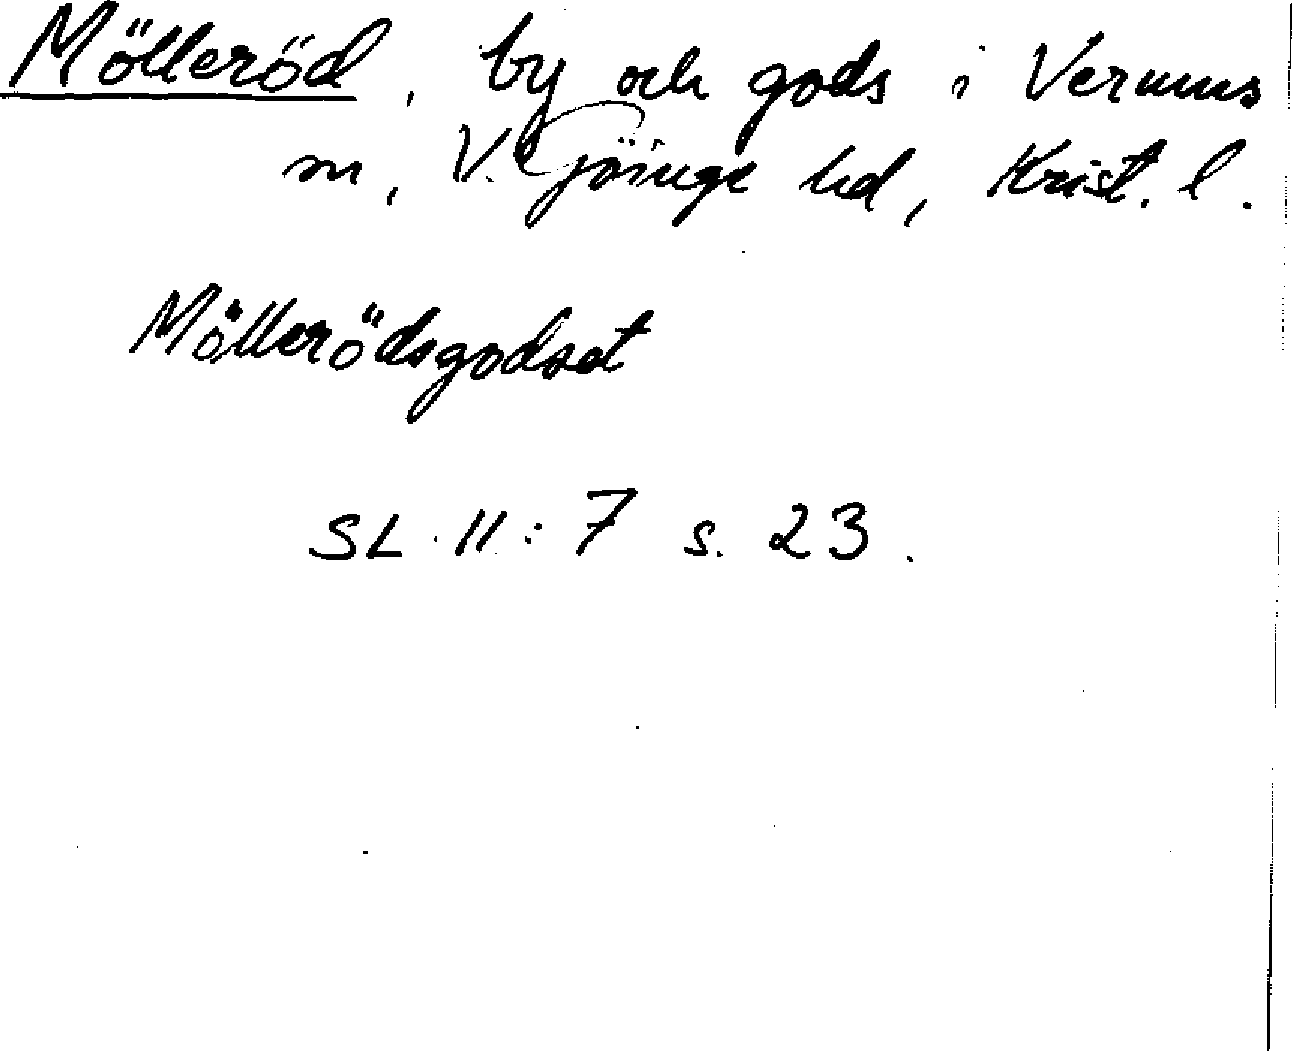 Mölleröd, by och gods i Verums
sn, V. Göinge hd, Krist. l.
Möllerödsgodset
SL. II: 7 s. 23.